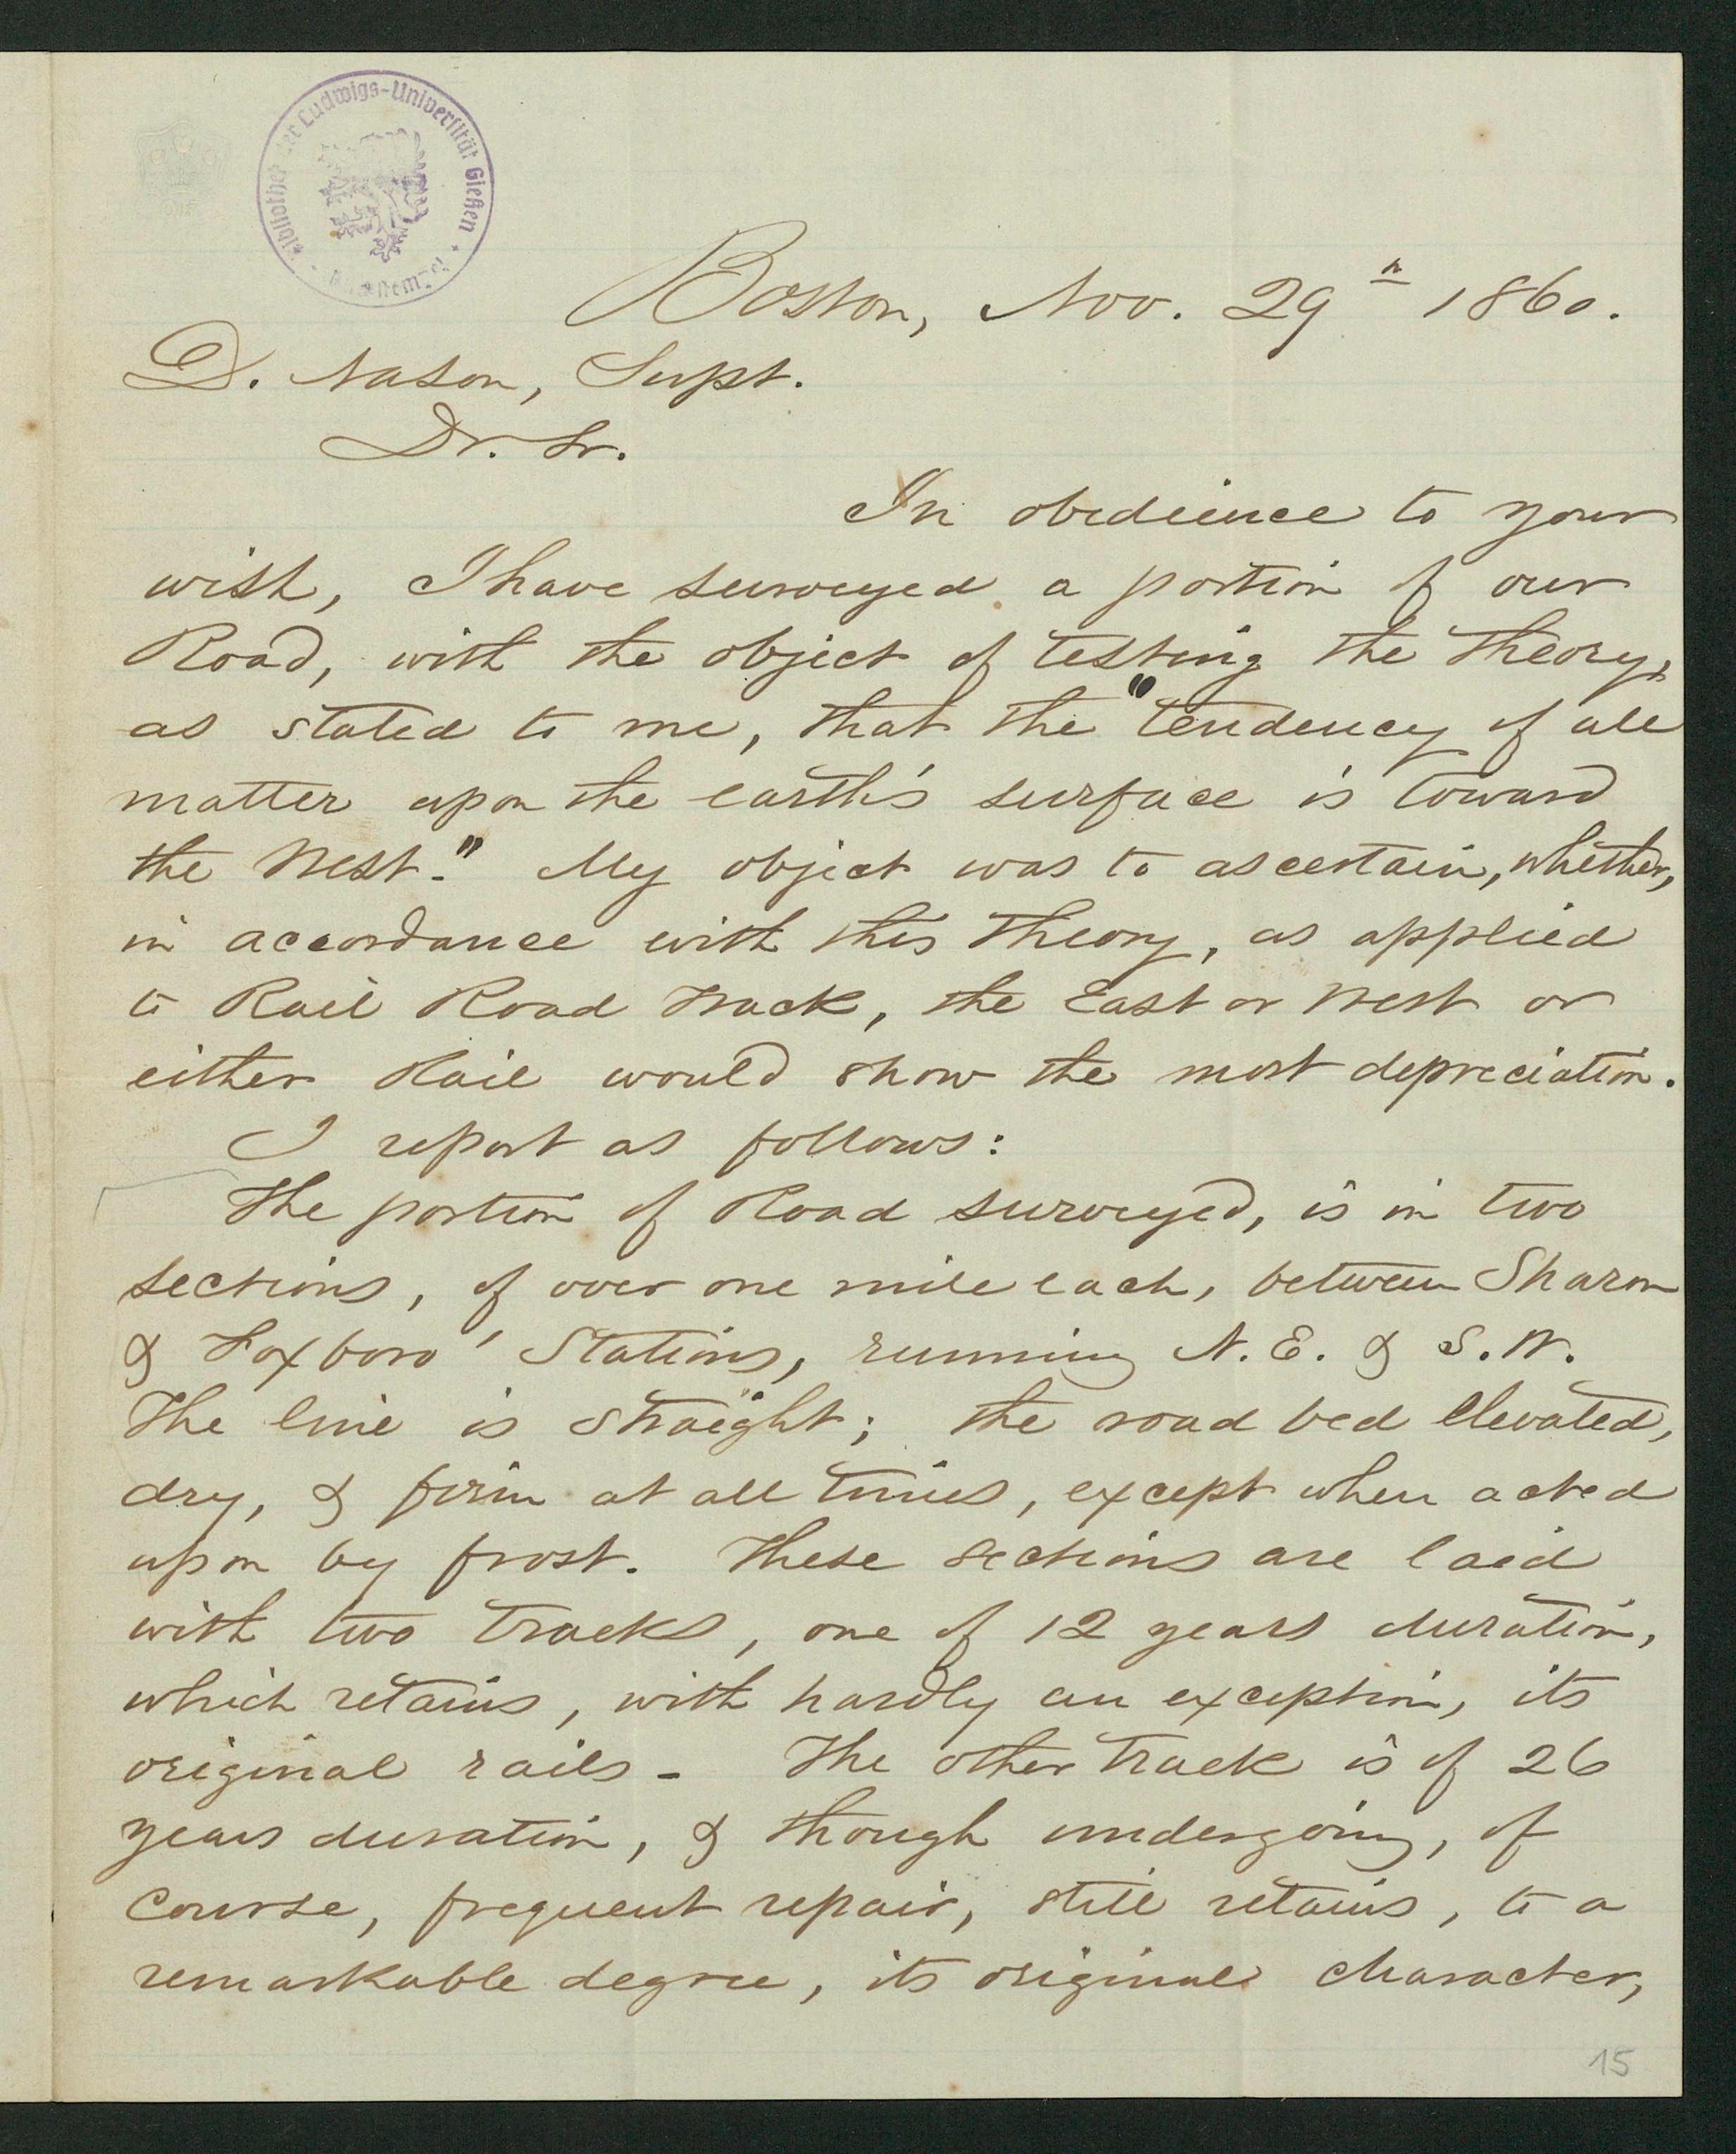 Bibliothek der Ludwigs-Universität Gießen
Boston, Nov. 29th 1860.
D. Nason, Supt.
Dr. Sr.
In obedience to your
wish, I have surveyed a portion of our
Road, with the object of testing the theory,
as stated to me, that the "tendency of all
matter upon the earth's surface is toward
the West." My object was to ascertain, whether,
in accordance with this theory, as applied
to Rail Road track, the East or West or
either Rail would show the most depreciation.
I report as follows:
The portion of Road surveyed, is in two
sections, of over one mile each, between Sharon
& Foxboro' Stations, running N.E. & S.W.
The line is straight; the road bed elevated,
dry, & firm at all times, except when acted
upon by frost. These sections are laid
with two tracks, one of 12 years duration,
which retains, with hardly an exception, its
original rails - The other track is of 26
years duration, & though undergoing, of
course, frequent repair, still retains, to a
remarkable degree, its original character,
15